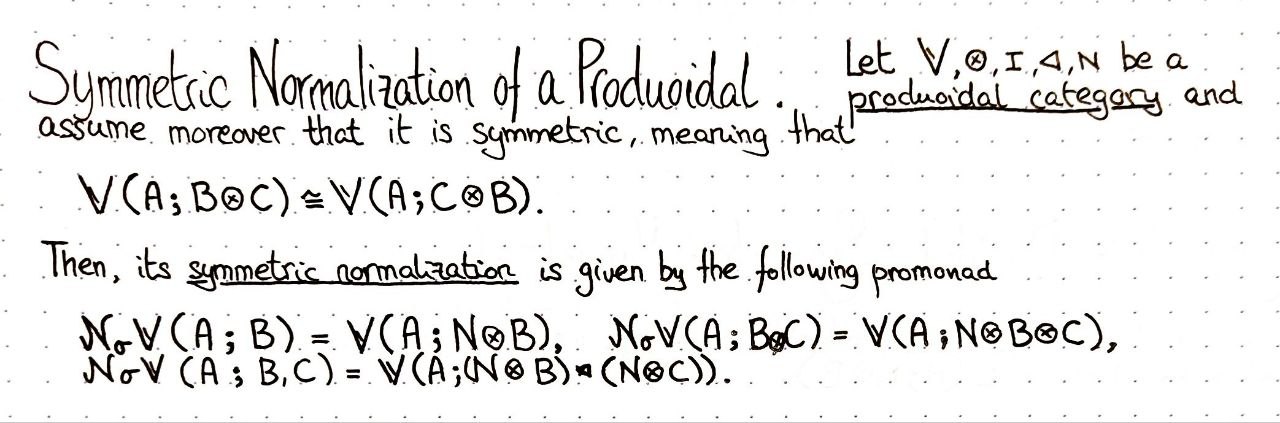 Symmetric Normalization of a Produoidal. Let 𝕍,⊗,I,◁,N be a
produoidal category and
assume moreover that it is symmetric, meaning that
𝕍(A;B⊗C)≅𝕍(A;C⊗B).
Then, its symmetric normalization is given by the following promonad
𝒩σ𝕍(A;B) = 𝕍(A;N⊗B), 𝒩σ𝕍(A;B⊗C) = 𝕍(A;N⊗B⊗C),
𝒩σ𝕍(A;B,C) = 𝕍(A;(N⊗B)◁(N⊗C)).